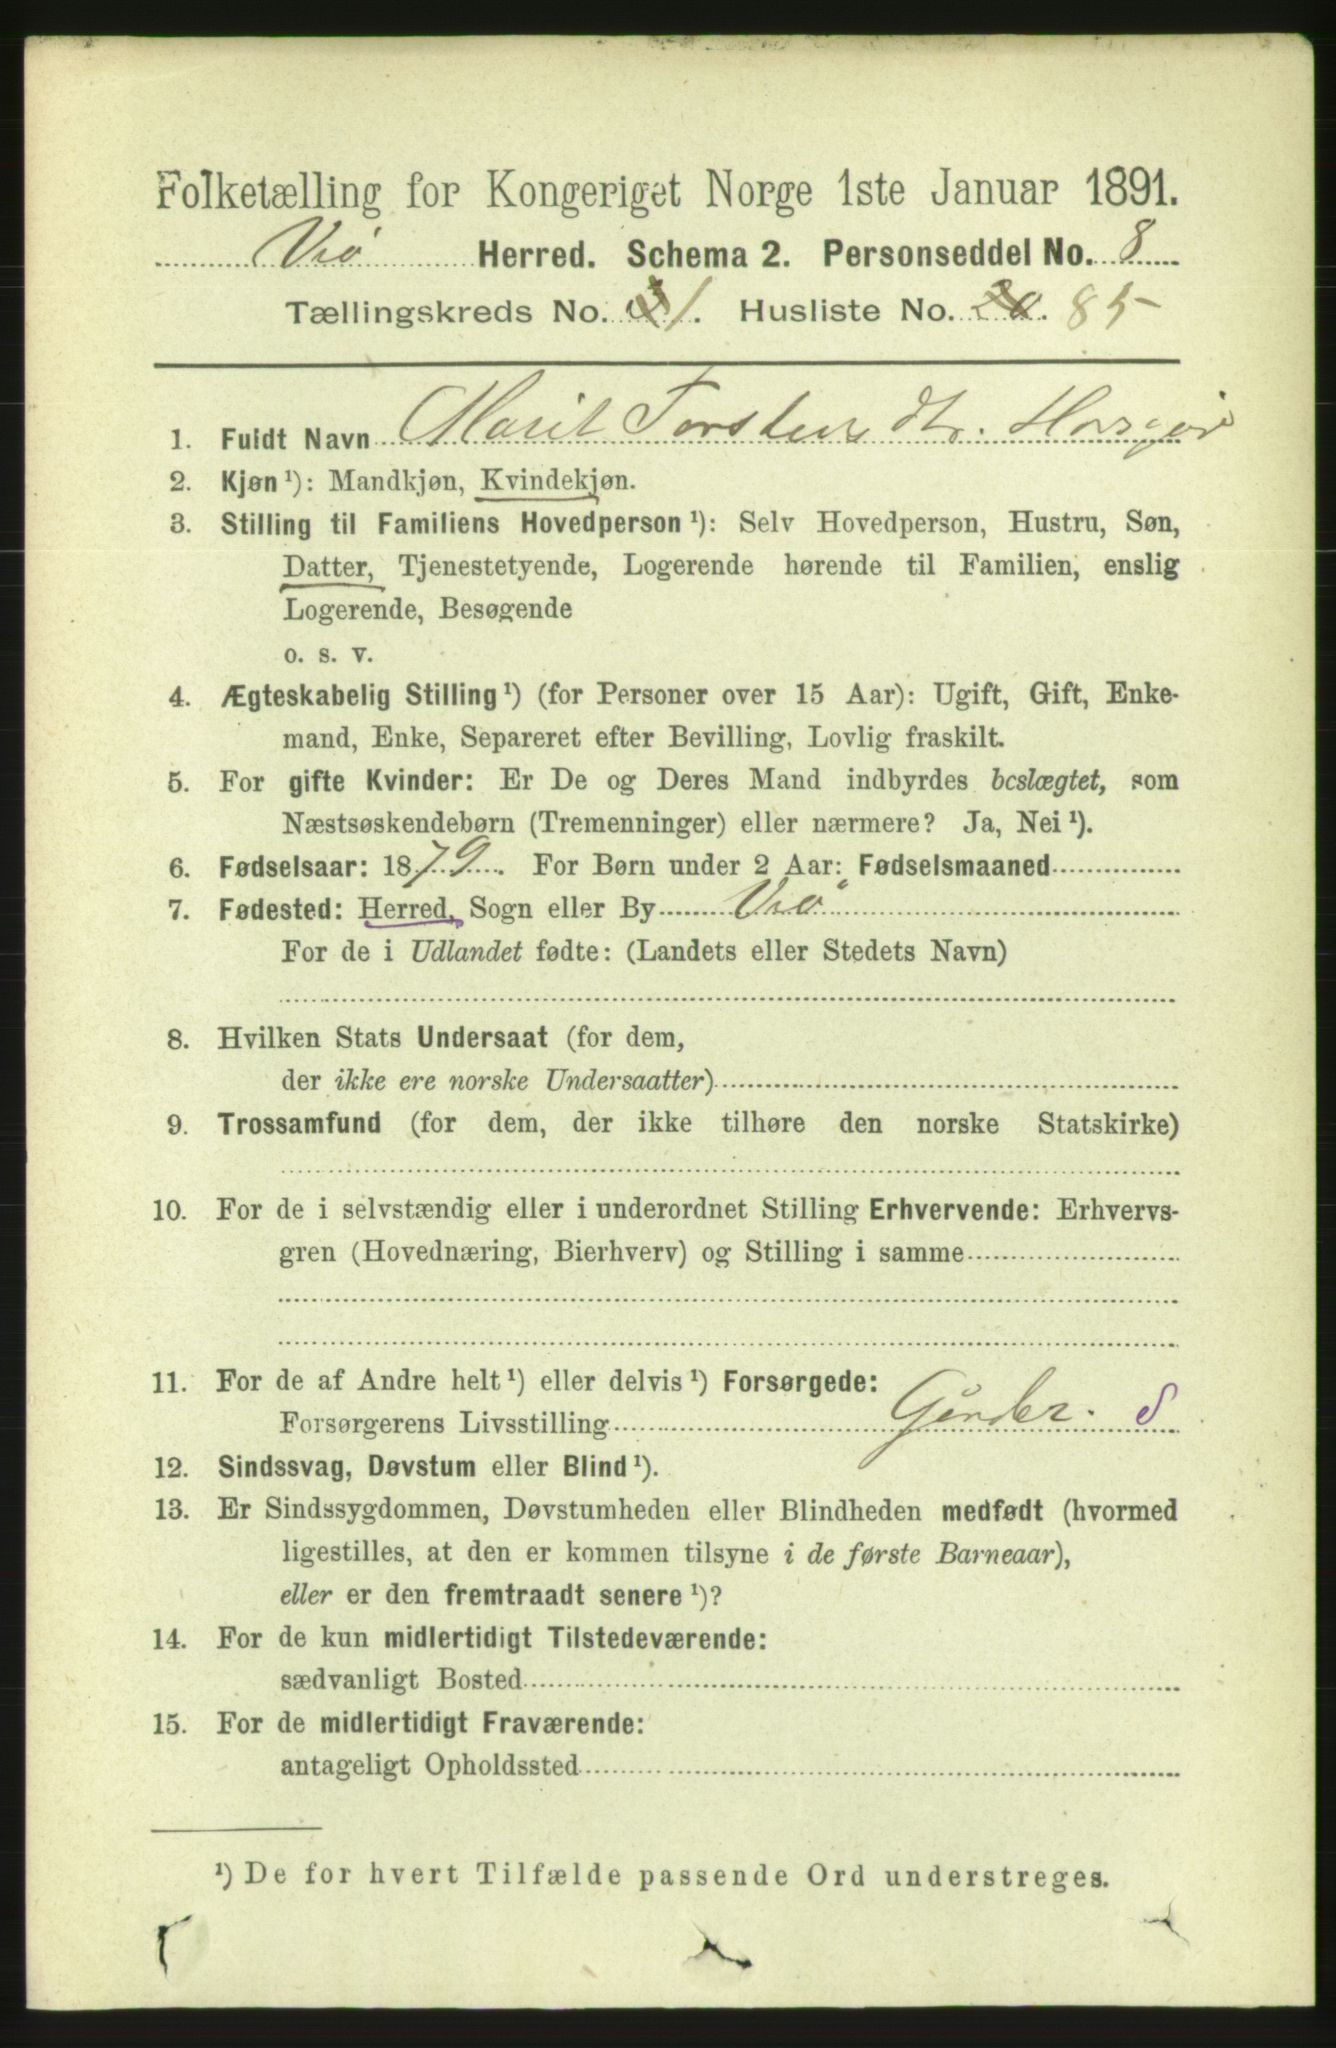 Folketælling for Kongeriget Norge 1ste Januar 1891.
Veø Herred. Schema 2. Personseddel No. 8
Tællingskreds No. 1. Husliste No. 85
1. Fuldt Navn Marit Torstensdtr.
2. Kjøn ¹): Mandkjøn, Kvindekjøn.
3. Stilling til Familiens Hovedperson ¹): Selv Hovedperson, Hustru, Søn,
Datter, Tjenestetyende, Logerende hørende til Familien, enslig
Logerende, Besøgende
o. s. v.
4. Ægteskabelig Stilling ¹) (for Personer over 15 Aar): Ugift, Gift, Enke-
mand, Enke, Separeret efter Bevilling, Lovlig fraskilt.
5. For gifte Kvinder: Er De og Deres Mand indbyrdes beslægtet, som
Næstsøskendebørn (Tremenninger) eller nærmere? Ja, Nei ¹).
6. Fødselsaar: 1879. For Børn under 2 Aar: Fødselsmaaned
7. Fødested: Herred, Sogn eller By Veø
For de i Udlandet fødte: (Landets eller Stedets Navn)
8. Hvilken Stats Undersaat (for dem,
der ikke ere norske Undersaatter)
9. Trossamfund (for dem, der ikke tilhøre den norske Statskirke)
10. For de i selvstændig eller i underordnet Stilling Erhvervende: Erhvervs-
gren (Hovednæring, Bierhverv) og Stilling i samme
11. For de af Andre helt ¹) eller delvis ¹) Forsørgede:
Forsørgerens Livsstilling S
12. Sindssvag, Døvstum eller Blind ¹).
13. Er Sindssygdommen, Døvstumheden eller Blindheden medfødt (hvormed
ligestilles, at den er kommen tilsyne i de første Barneaar),
eller er den fremtraadt senere ¹)?
14. For de kun midlertidigt Tilstedeværende:
sædvanligt Bosted
15. For de midlertidigt Fraværende:
antageligt Opholdssted
¹) De for hvert Tilfælde passende Ord understreges.